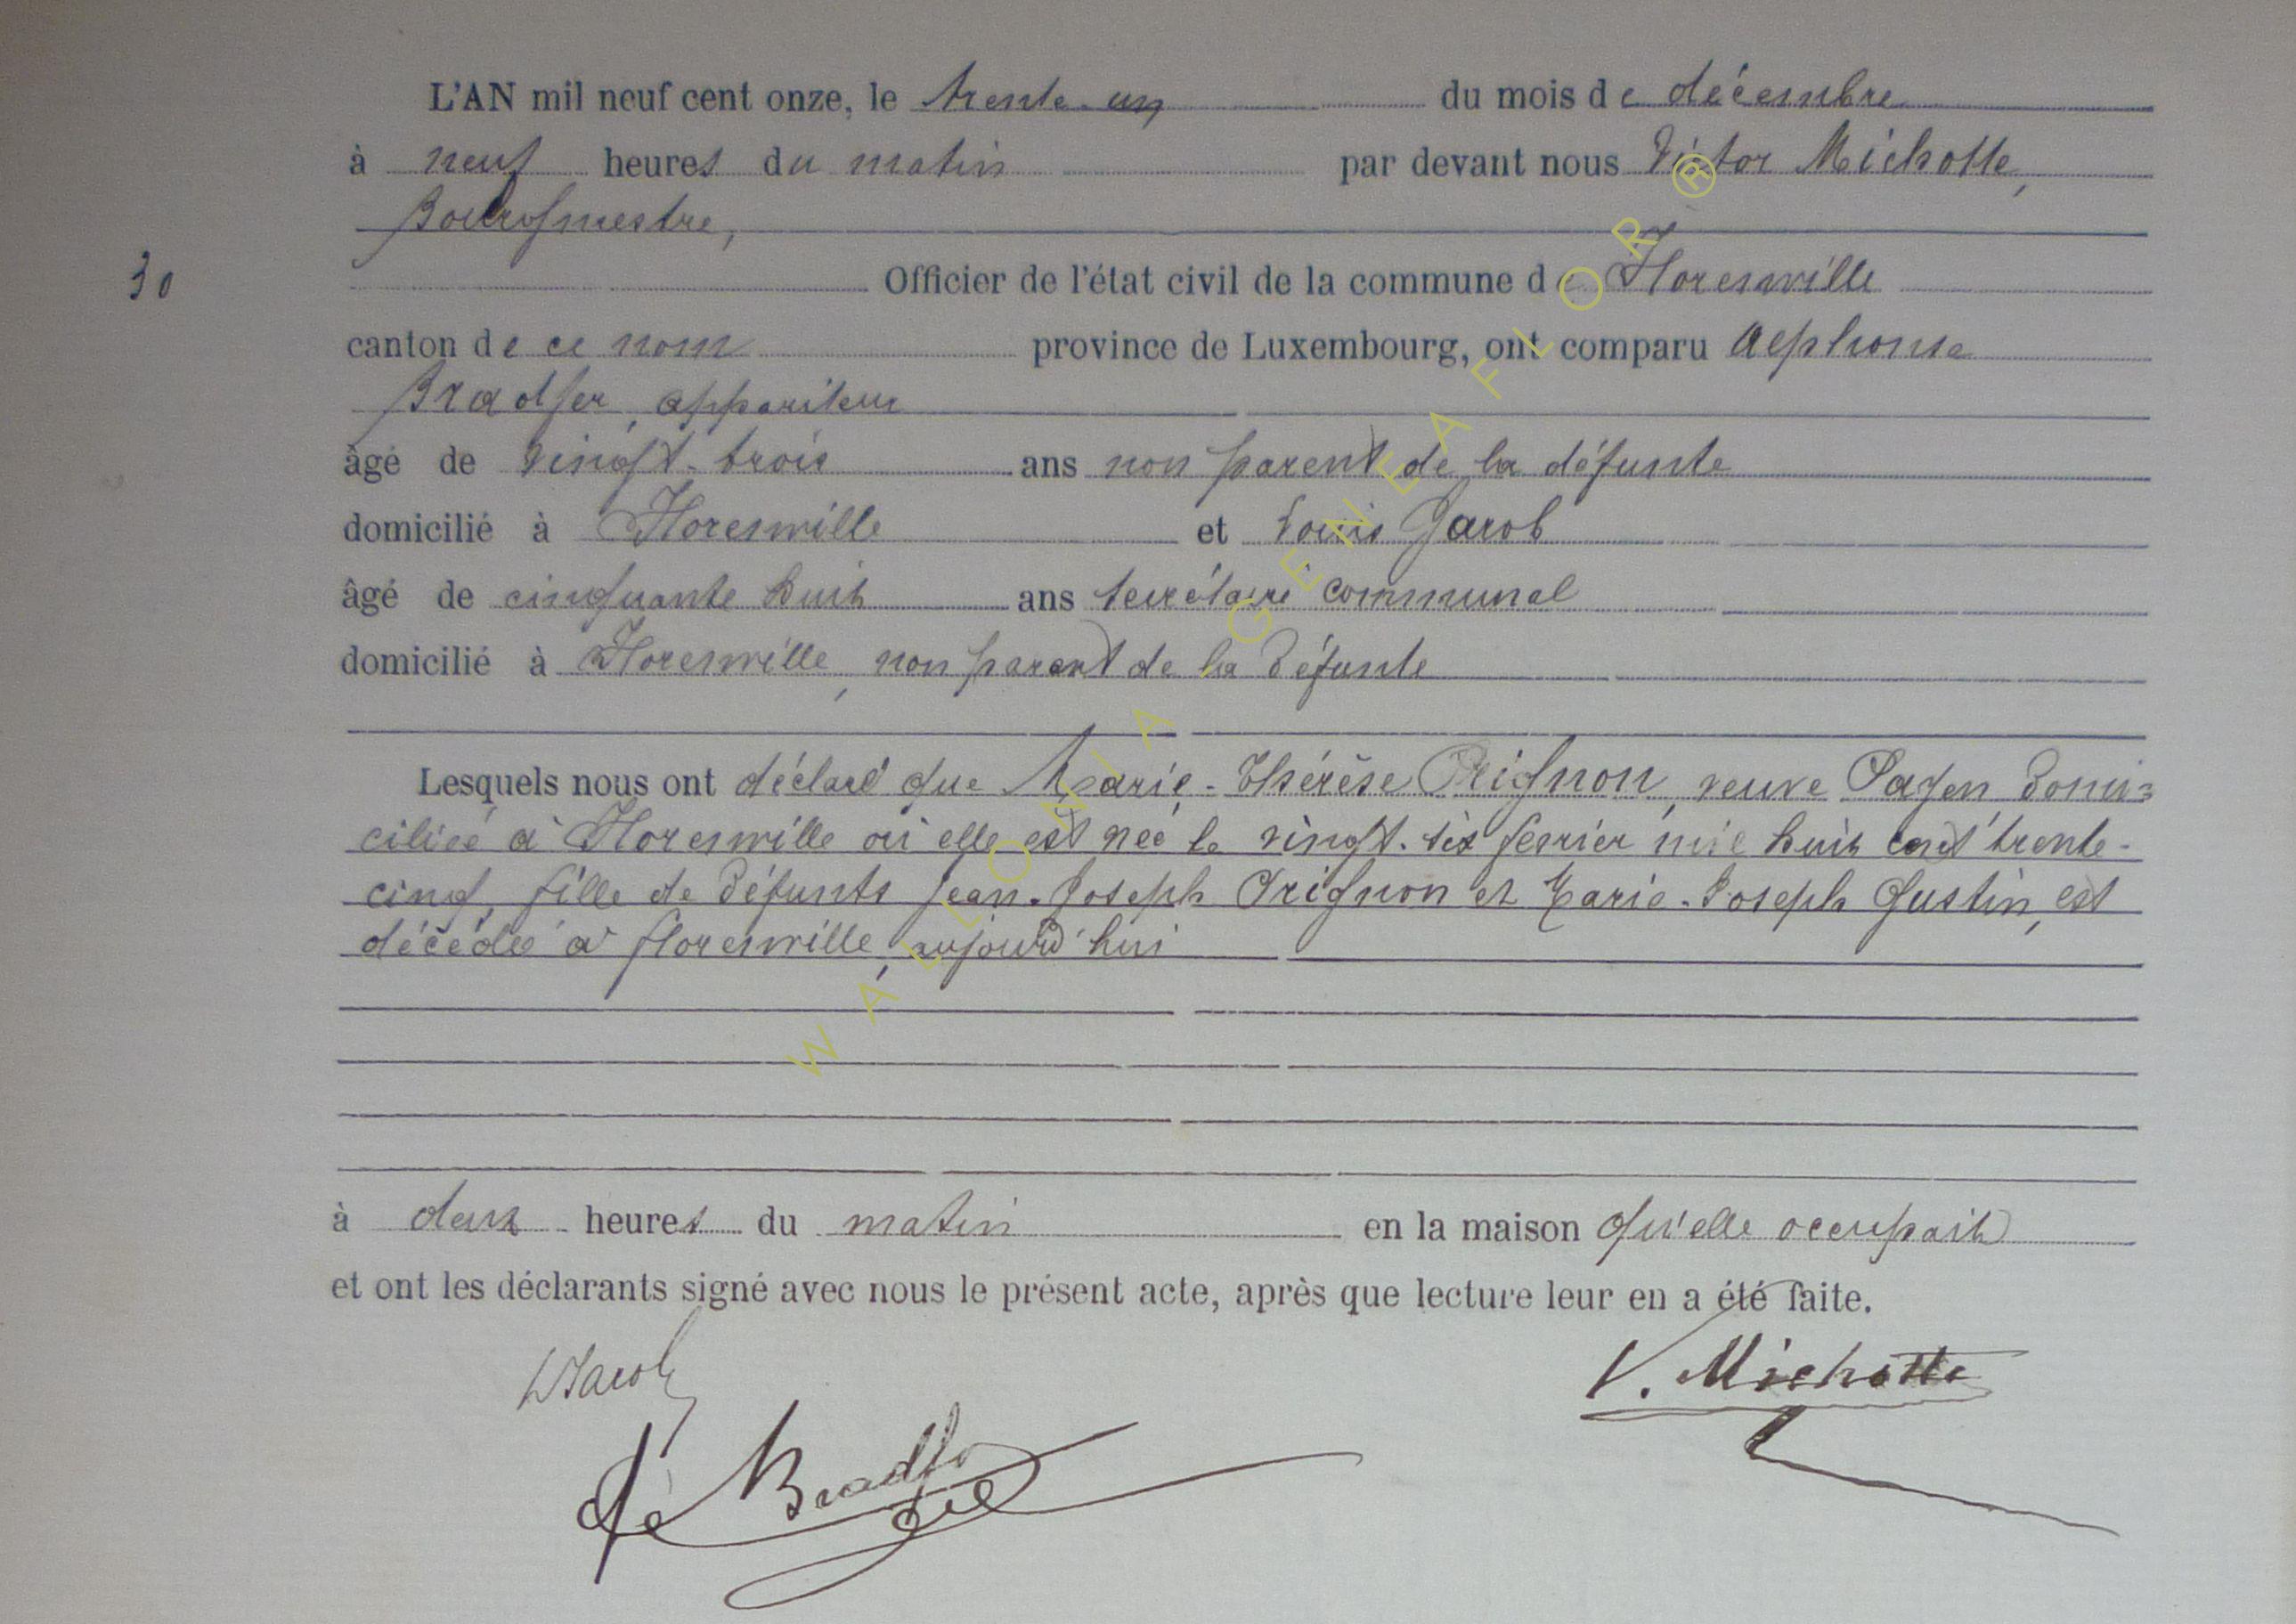 L'AN mil neuf cent onze, le trente-un du mois de décembre
à neuf heures du matin par devant nous Victor Michotte,
Bourgmestre,
30
Officier de l'état civil de la commune de Florenville
canton de ce nom province de Luxembourg, ont comparu Alphonse
appariteur
âgé de vingt-trois ans non parent de la défunte
domicilié à Florenville et Louis Jacob
âgé de cinquante huit ans secrétaire communal
domicilié à Florenville, non parent de la défunte
Lesquels nous ont déclaré que Marie-Thérèse Prignon, veuve domi=
ciliée à Florenville où elle est née le vingt-six février mil huit cent trente-
cinq, fille de défunts Jean-Joseph Prignon et Marie-Joseph Gustin, est
décédée à Florenville, aujourd'hui
à deux heures du matin en la maison qu'elle occupait
et ont les déclarants signé avec nous le présent acte, après que lecture leur en a été faite.
LJacob V. Michotte
WALLONIA GENEAFLOR ®